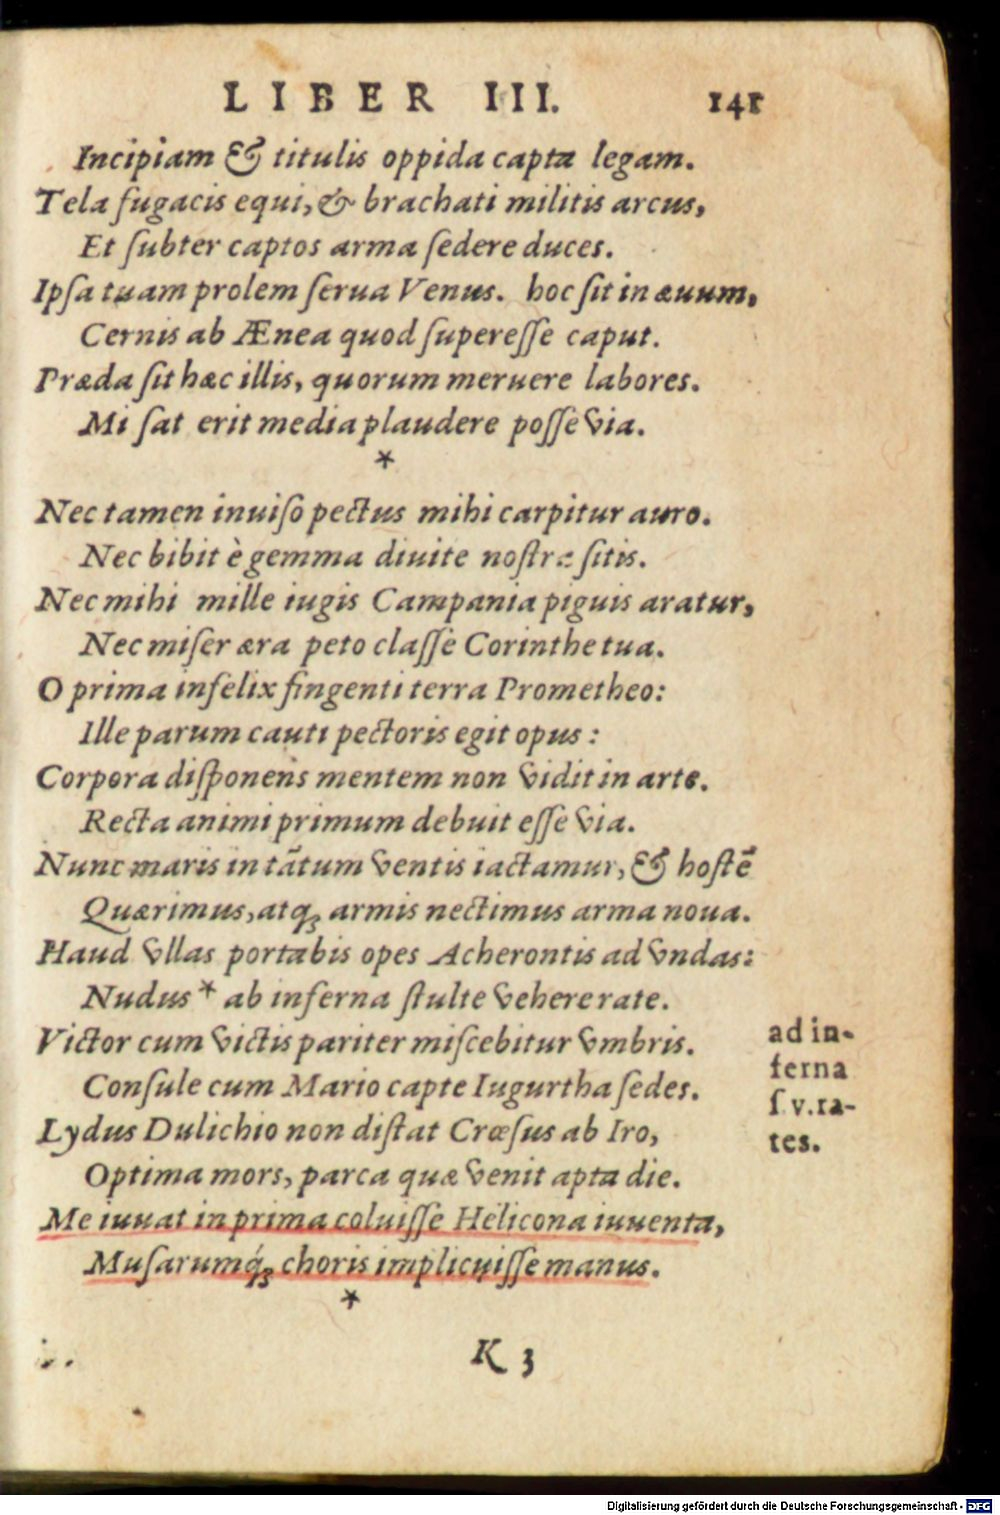 LIBER III. 141
Incipiam & titulis oppida capta legam.
Tela fugacis equi, & brachati militis arcus,
Et ſubter captos arma ſedere duces.
Ipſa tuam prolem ſerua Venus. hoc ſit in æuum,
Cernis ab Ænea quod ſupereſſe caput.
Præda ſit hæc illis, quorum meruere labores.
Mi ſat erit media plaudere poſſe via.
*
Nec tamen inuiſo pectus mihi carpitur auro.
Nec bibit è gemma diuite noſtra ſitis.
Nec mihi mille iugis Campania piguis aratur,
Nec miſer æra peto claſſe Corinthe tua.
O prima infelix fingenti terra Prometheo:
Ille parum cauti pectoris egit opus:
Corpora diſponens mentem non vidit in arte.
Recta animi primum debuit eſſe via.
Nunc maris in tãtum ventis iactamur, & hoſtẽ
Quærimus, atq; armis nectimus arma noua.
Haud vllas portabis opes Acherontis ad vndas:
Nudus* ab inferna ſtulte vehere rate.
Victor cum victis pariter miſcebitur vmbris.
Conſule cum Mario capte Iugurtha ſedes.
Lydus Dulichio non diſtat Crœſus ab Iro,
Optima mors, parca quæ venit apta die.
Me iuuat in prima coluiſſe Helicona iuuenta,
Muſarumq́; choris implicuiſſe manus.
*
K 3
ad in-
ferna
ſ v. ra-
tes.
Digitalisierung gefördert durch die Deutsche Forschungsgemeinschaft - DFG